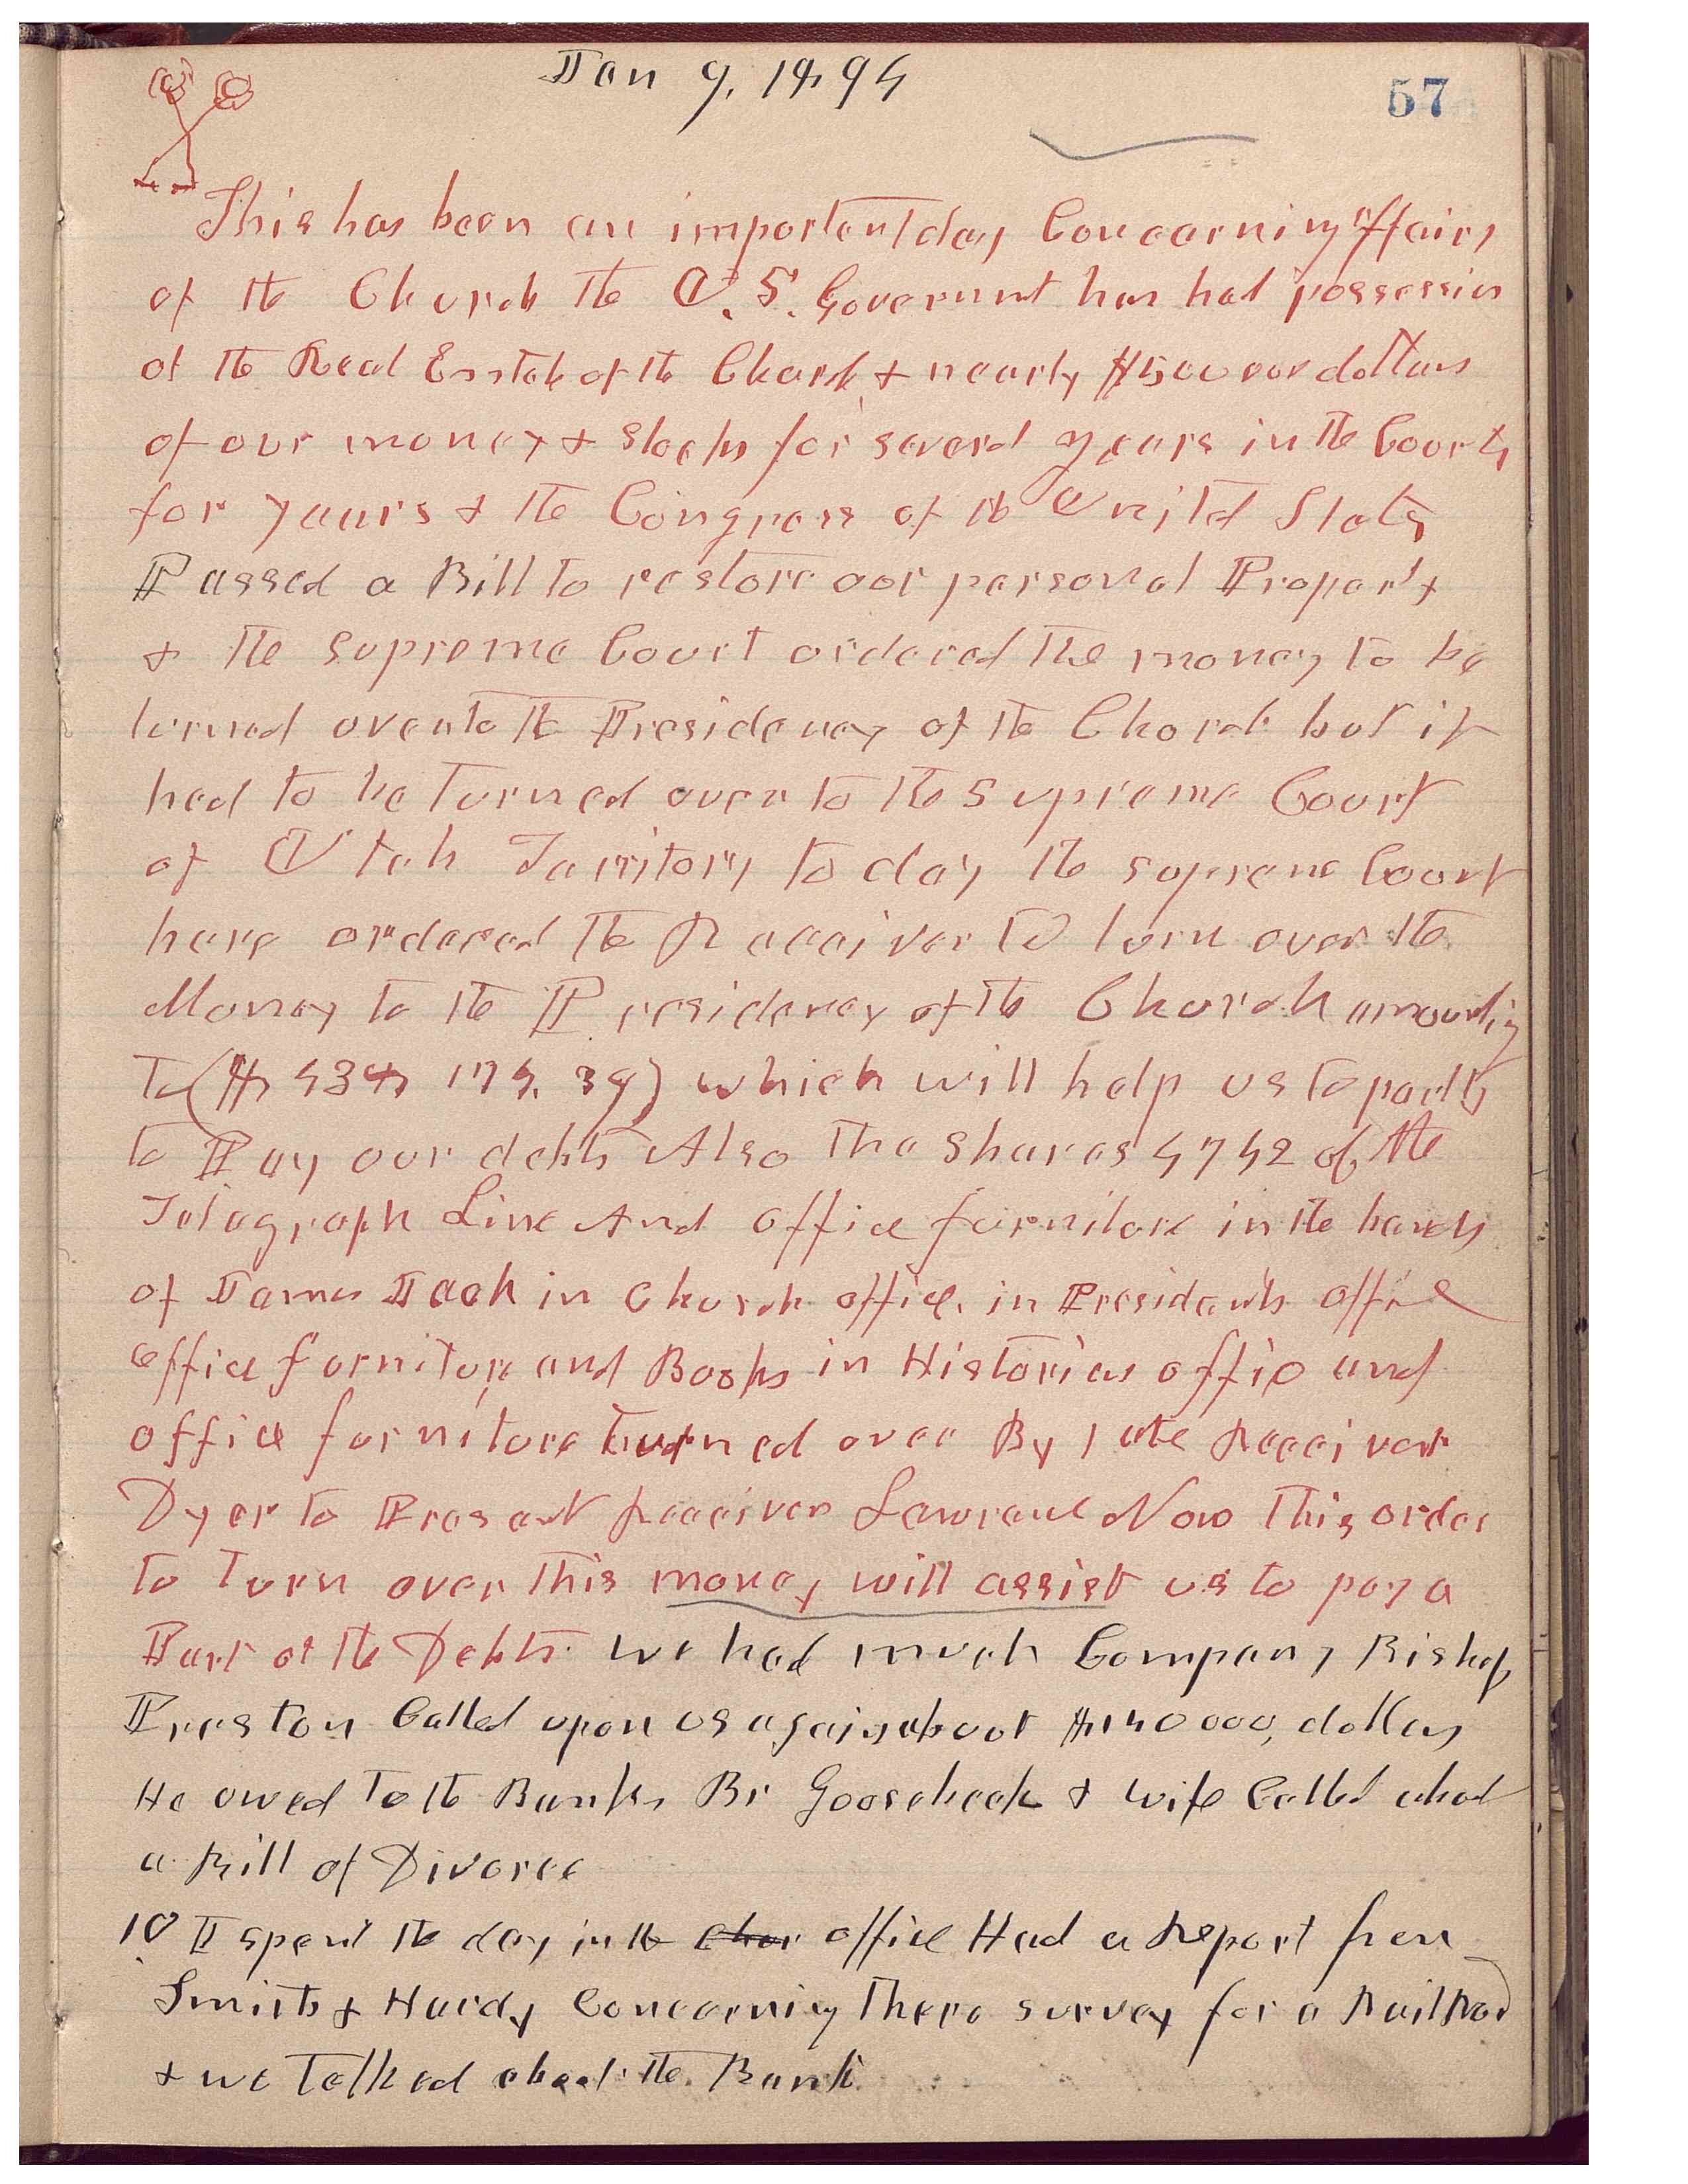 Jan 9, 1894
57
This has been an important day Concerning affairs
of the Church the U.S. Goverment has had possession
of the Real Esstate of the Church & nearly $500000 dollars
of our money & stocks for several years in the Courts
for years & the Congress of the United States
Passed a Bill to restore our personal Property
& the supreme Court ordered the money to be
turned over to the Presidency of the Church but it
had to be turned over to the Supreme Court
of Utah Territory to day the supreme Court
have ordered the Receiver to turn over the
Money to the Presidency of the Church amounting
to ($438174.39) which will help us to partly
to Pay our debts Also The shares 4742 of the
Telegraph Line And office furniture in the hands
of James Jack in Church office, in Presidents office
office furniture and Books in Historians office and
office furniture turned over By late Receiver
Dyer to Present Receiver Lawrence Now This order
to Turn over this money will assist us to pay a
Part of the Debts. We had much Company Bishop
Preston Called upon us again about $140000, dollars
He owed to the Banks Br Goosebeck & wife Called about
a Bill of Divorce
10 I spent the day in the Chur office Had a Report from
Smith & Hardy Concerning There survey for a RailRoad
& we Talked about the Bank